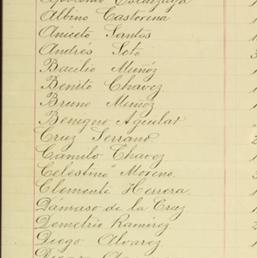 Albino Castorena
Aniceto Santos
Andrés Soto
Bacilio Muñóz
Benito Chavez
Bruno Muñoz
Benigno Aguilar
Cruz Serrano
Camilo Chavez
Celestino Moreno
Clemente Herrera
Dámaso de la Cruz
Demetrio Ramirez
Diego Alvarez
Diego